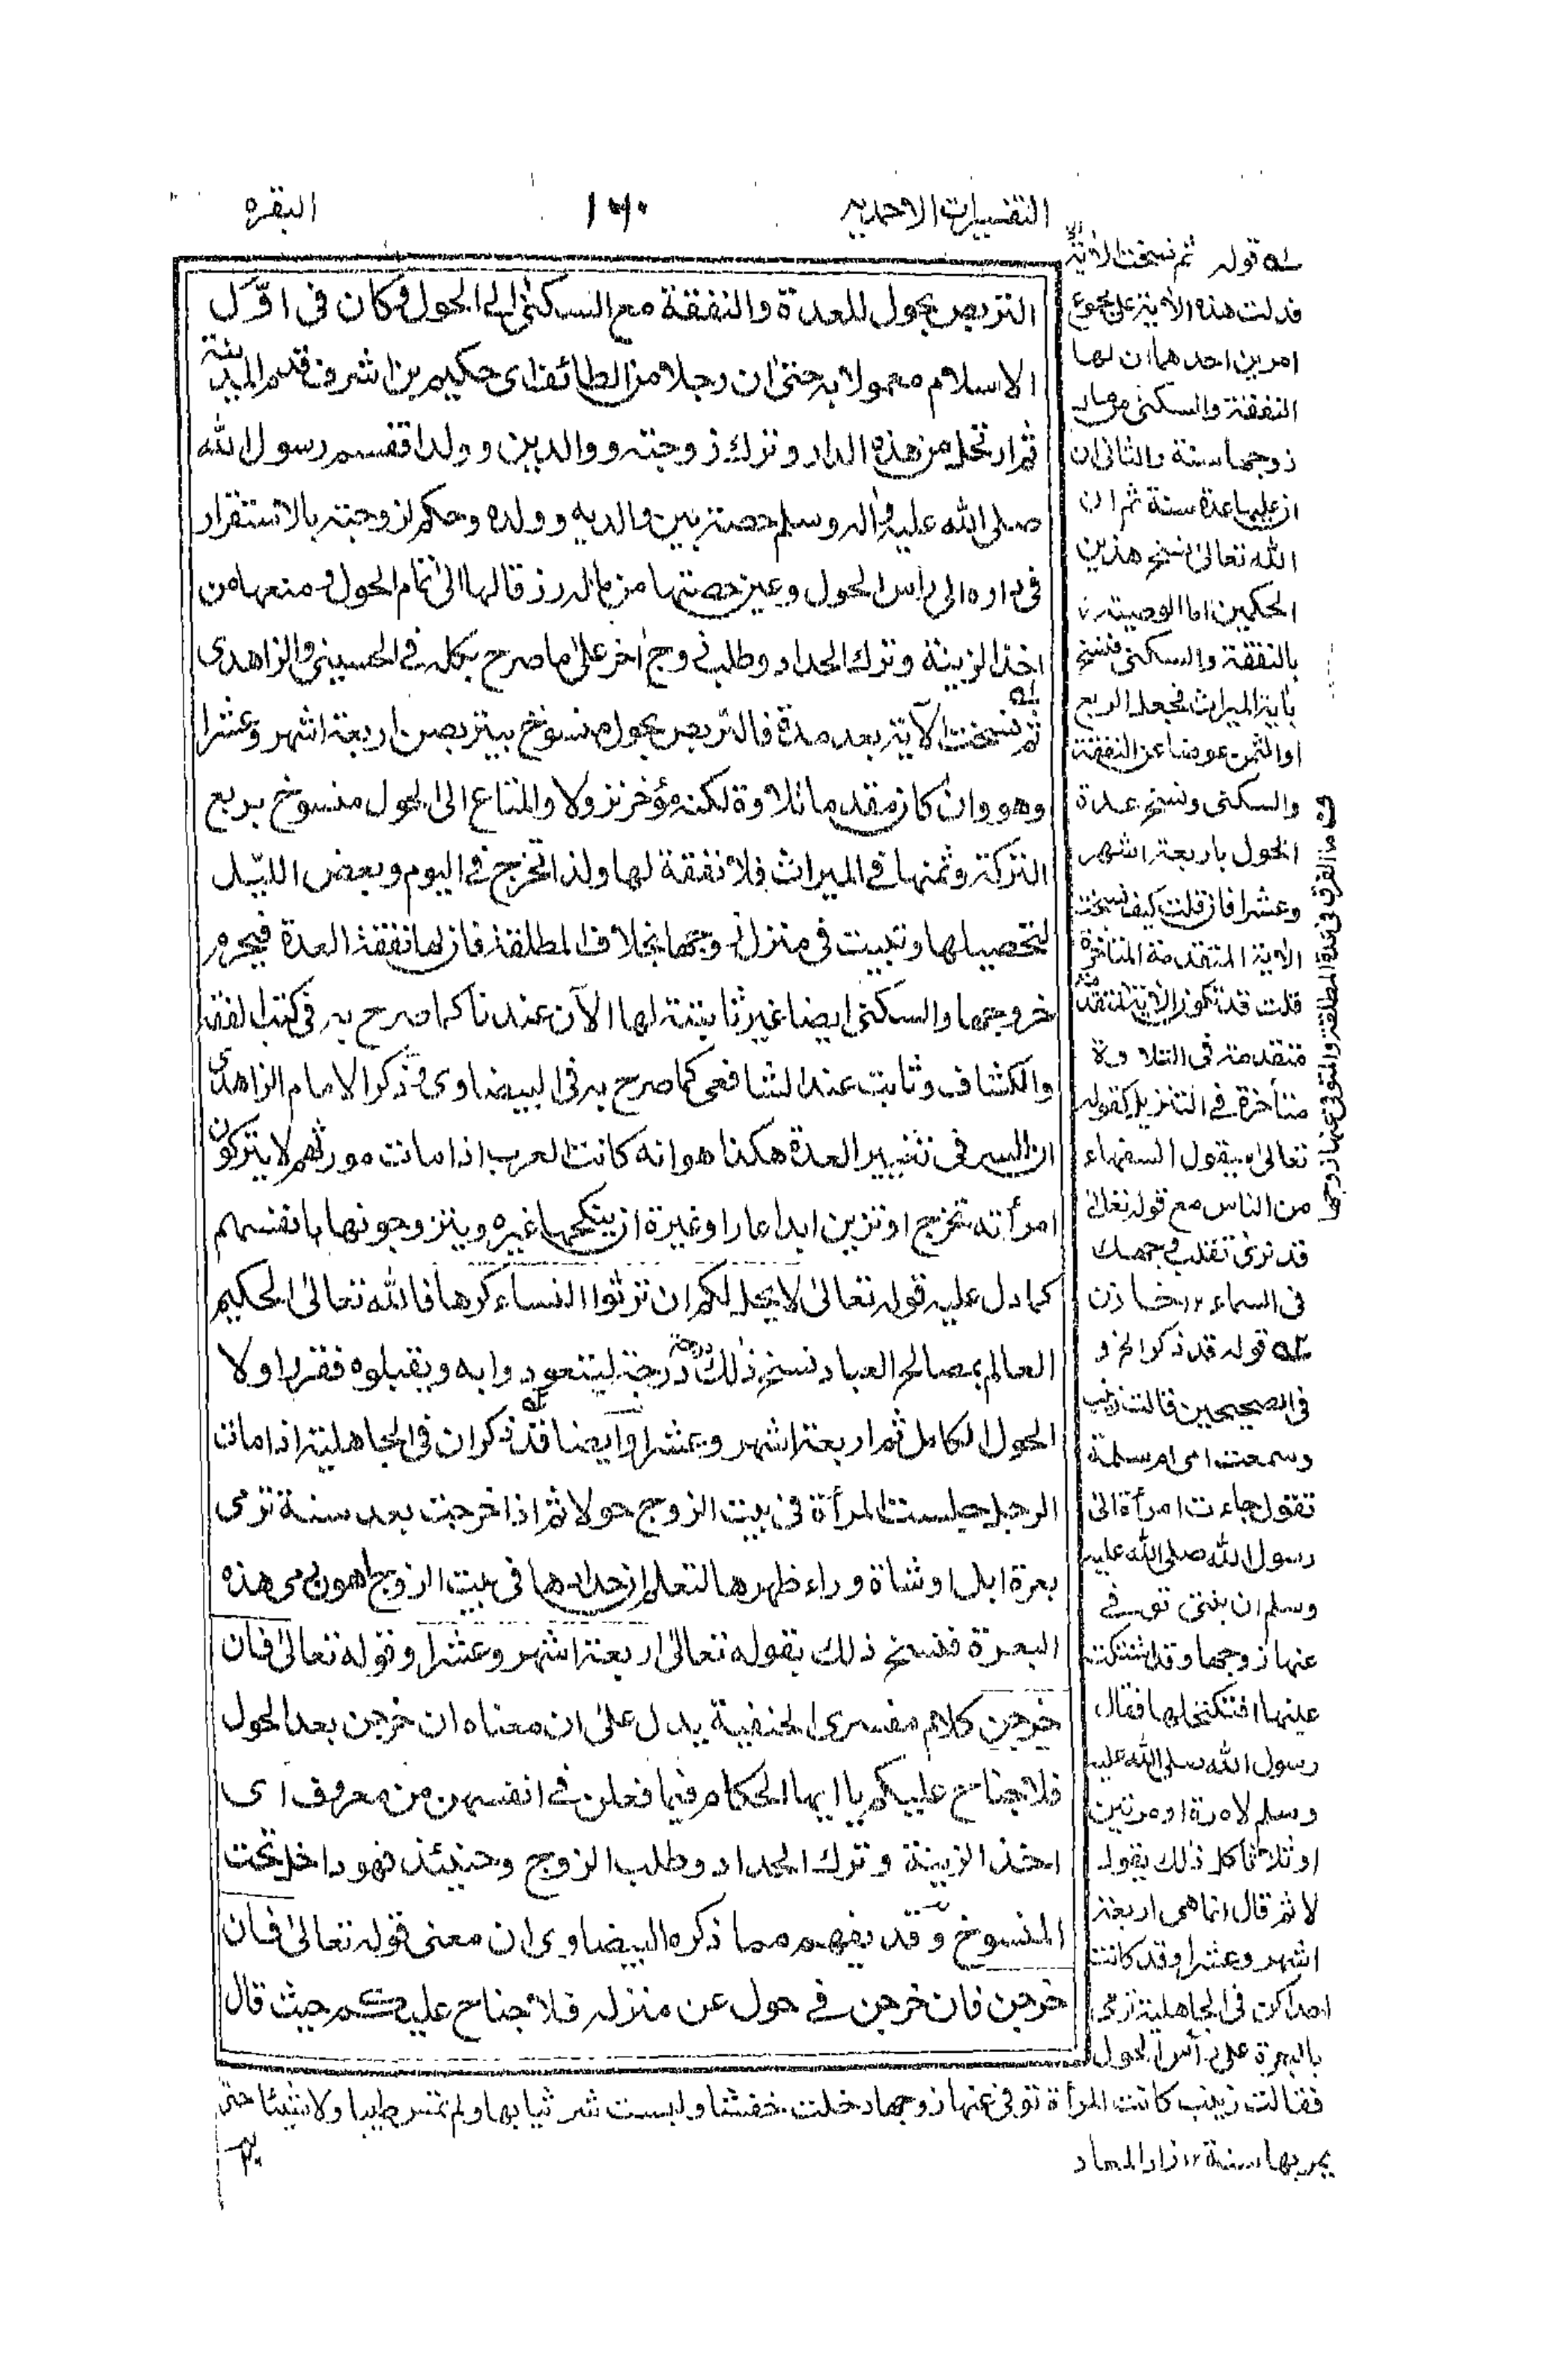 التفسيرات الاحمديه
١٦٠
البقره
التربص بحول للعدة والنفقة مع السكنى الى الحول فكان فى اوّل
الاسلام معمولا به حتى ان رجلا من الطائف اى حكيم بن اشرف قدم المدينة
ثم ارتحل من هذه الدار وترك زوجته ووالدين وولدا فقسم رسول الله
صلى الله عليه واله وسلم حصته بين والديه وولده وحكم لزوجته بالاستقرار
فى داره الى راس الحول وعين حصتها من ماله رزقا لها الى تمام الحول ومنعها من
اخذ الزينة وترك الحداد وطلب زوج اخر على ما صرح بكله فى الحسينى والزاهدى
ثم نسخت الآية بعد مدة فالتربص بحول منسوخ بيتربصن اربعة اشهر وعشرا
وهو وان كان مقدما تلاوة لكنه مؤخر نزولا والمتاع الى الحول منسوخ بربع
التركة وثمنها فى الميراث فلا نفقة لها ولذا تخرج فى اليوم وبعض الليل
لتحصيلها وتبيت فى منزل زوجها بخلاف المطلقة فان لها نفقة العدة فيحرم
خروجها والسكنى ايضا غير ثابتة لها الآن عندنا كما صرح به فى كتب الفقه
والكشاف وثابت عند الشافعى كما صرح به فى البيضاوى وذكر الامام الزاهدى
ان السر فى تغيير العدة هكذا هو انه كانت العرب اذا مات مورثهم لا يتركون
امرأته تخرج او تزين ابدا عارا وغيرة ان ينكحها غيره ويتزوجونها بانفسهم
كما دل عليه قوله تعالى لا يحل لكم ان ترثوا النساء كرها فالله تعالى الحكيم
العالم بمصالح العباد نسخ ذلك درجة درجة ليتعودوا به ويقبلوه فقرر اولا
الحول الكامل ثم اربعة اشهر وعشرا وايضا قد ذكر ان فى الجاهلية اذا مات
الرجل جلست المرأة فى بيت الزوج حولا ثم اذا خرجت بعد سنة ترمى
بعرة ابل او شاة وراء ظهرها لتعلم ان حدادها فى بيت الزوج اهون من رمى هذه
البعرة فنسخ ذلك بقوله تعالى اربعة اشهر وعشرا وقوله تعالى فان
خرجن كلام مفسرى الحنفية يدل على ان معناه ان خرجن بعد الحول
فلا جناح عليكم يا ايها الحكام فيما فعلن فى انفسهن من معروف اى
اخذ الزينة وترك الحداد وطلب الزوج وحينئذ فهو داخل تحت
المنسوخ وقد يفهم مما ذكره البيضاوى ان معنى قوله تعالى فان
خرجن فان خرجن فى حول عن منزله فلا جناح عليكم حيث قال
له قوله ثم نسخت الاية
فدلت هذه الاية على مجموع
امرين احدهما ان لها
النفقة والسكنى من مال
زوجها سنة والثانى ان
ان عليها عدة سنة ثم ان
الله تعالى نسخ هذين
الحكمين اما الوصية
بالنفقة والسكنى فنسخ
بأية الميراث فجعل الربع
او الثمن عوضا عن النفقة
والسكنى ونسخ عدة
الحول باربعة اشهر
وعشرا فان قلت كيف نسخت
الاية المتقدمة المتاخرة
قلت قد تكون الاية المتقدمة
متقدمة فى التلاوة
متأخرة فى التنزيل كقوله
تعالى سيقول السفهاء
من الناس مع قوله تعالى
قد نرى تقلب وجهك
فى السماء ١٢ خازن
له قوله قد ذكر الخ و
فى الصحيحين قالت زينب
وسمعت امى ام سلمة
تقول جاءت امرأة الى
رسول الله صلى الله عليه
وسلم ان بنتى توفى
عنها زوجها وقد اشتكت
عينها افتكتحلها فقال
رسول الله صلى الله عليه
وسلم لا مرة او مرتين
او ثلاثا كل ذلك يقول
لا ثم قال انما هى اربعة
اشهر وعشرا وقد كانت
احداكن فى الجاهلية ترمى
بالبعرة على رأس الحول
فقالت زينب كانت المرأة توفى عنها زوجها دخلت حفشا ولبست شر ثيابها ولم تمس طيبا ولا شيئا حتى
يمر بها سنة ١٢ زاد المعاد
ف ما الفرق فى عدة المطلقة والمتوفى عنها زوجها